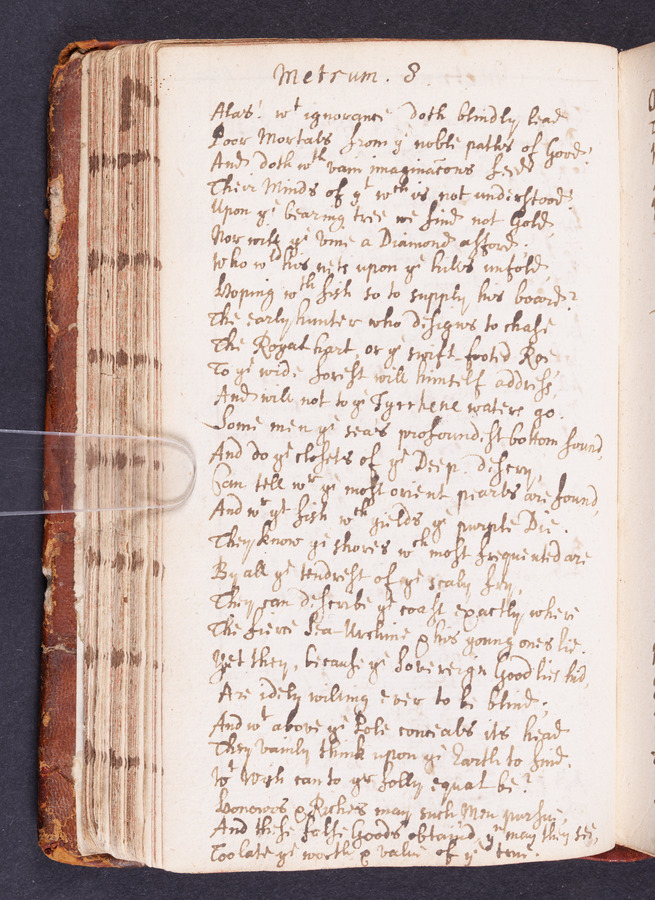 Metrum. 8.
Alas! wt ignorance doth blindly lead
Poor Mortals from ye noble paths of Good.
And doth wth vain imaginacons feed
Their Minds of yt wch is not understood.
Upon ye bearing tree we find not Gold
Nor will ye Vine a Diamond afford.
Who wld his nets upon ye hills unfold,
Hoping wth fish so to supply his board?
The early hunter who designs to chase
The Royal hart, or ye swift-footed Roe
To ye wide forest will himself address,
And will not to ye Tyrrhene waters go.
Some men ye seas profoundest bottom sound,
And do ye closets of ye Deep descry,
Can tell wr ye most orient pearls are found,
And wr yt fish wch yields ye purple Die.
They know ye shores wch most frequented are
By all ye tendrest of ye scaly fry,
They can describe ye coast exactly, where
The fierce Sea-Urchine & his young ones lie.
Yet they, because ye Sovereign Good lies hid,
Are idely willing ever to be blind,
And wt above ye Pole conceals its head
They vainly think upon ye Earth to find.
Wt Wish can to yr folly equal be?
Honowrs & Riches may such Men pursue,
And these false Goods obtained, yn may they see,
Too late ye worth & value of ye true.